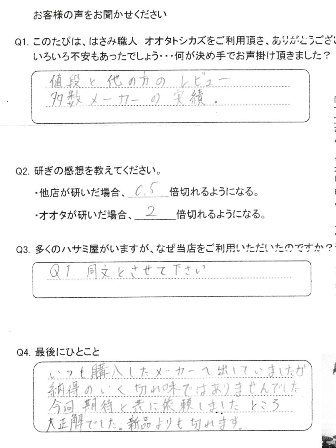 お客様の声をお聞かせください
Q1. このたびは、はさみ職人 オオタトシカズをご利用頂き、ありがとうござい
いろいろ不安もあったでしょう・・・何が決め手でお声掛け頂きました？
値段と他の方のレビュー
多数メーカーの実績。
Q2. 研ぎの感想を教えてください。
・他店が研いだ場合、 0.5 倍切れるようになる。
・オオタが研いだ場合、 2 倍切れるようになる。
Q3. 多くのハサミ屋がいますが、なぜ当店をご利用いただいたのですか？
Q1 同文とさせて下さい
Q4. 最後にひとこと
いつも購入したメーカーへ出していましたが
納得のいく切れ味ではありませんでした
今回期待と共に依頼しました ところ
大正解でした。新品よりも切れます。